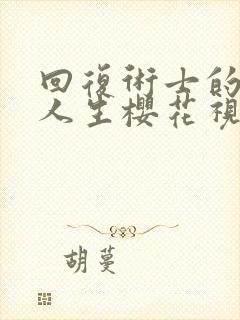 回復術士的
人生櫻花視
胡蔓